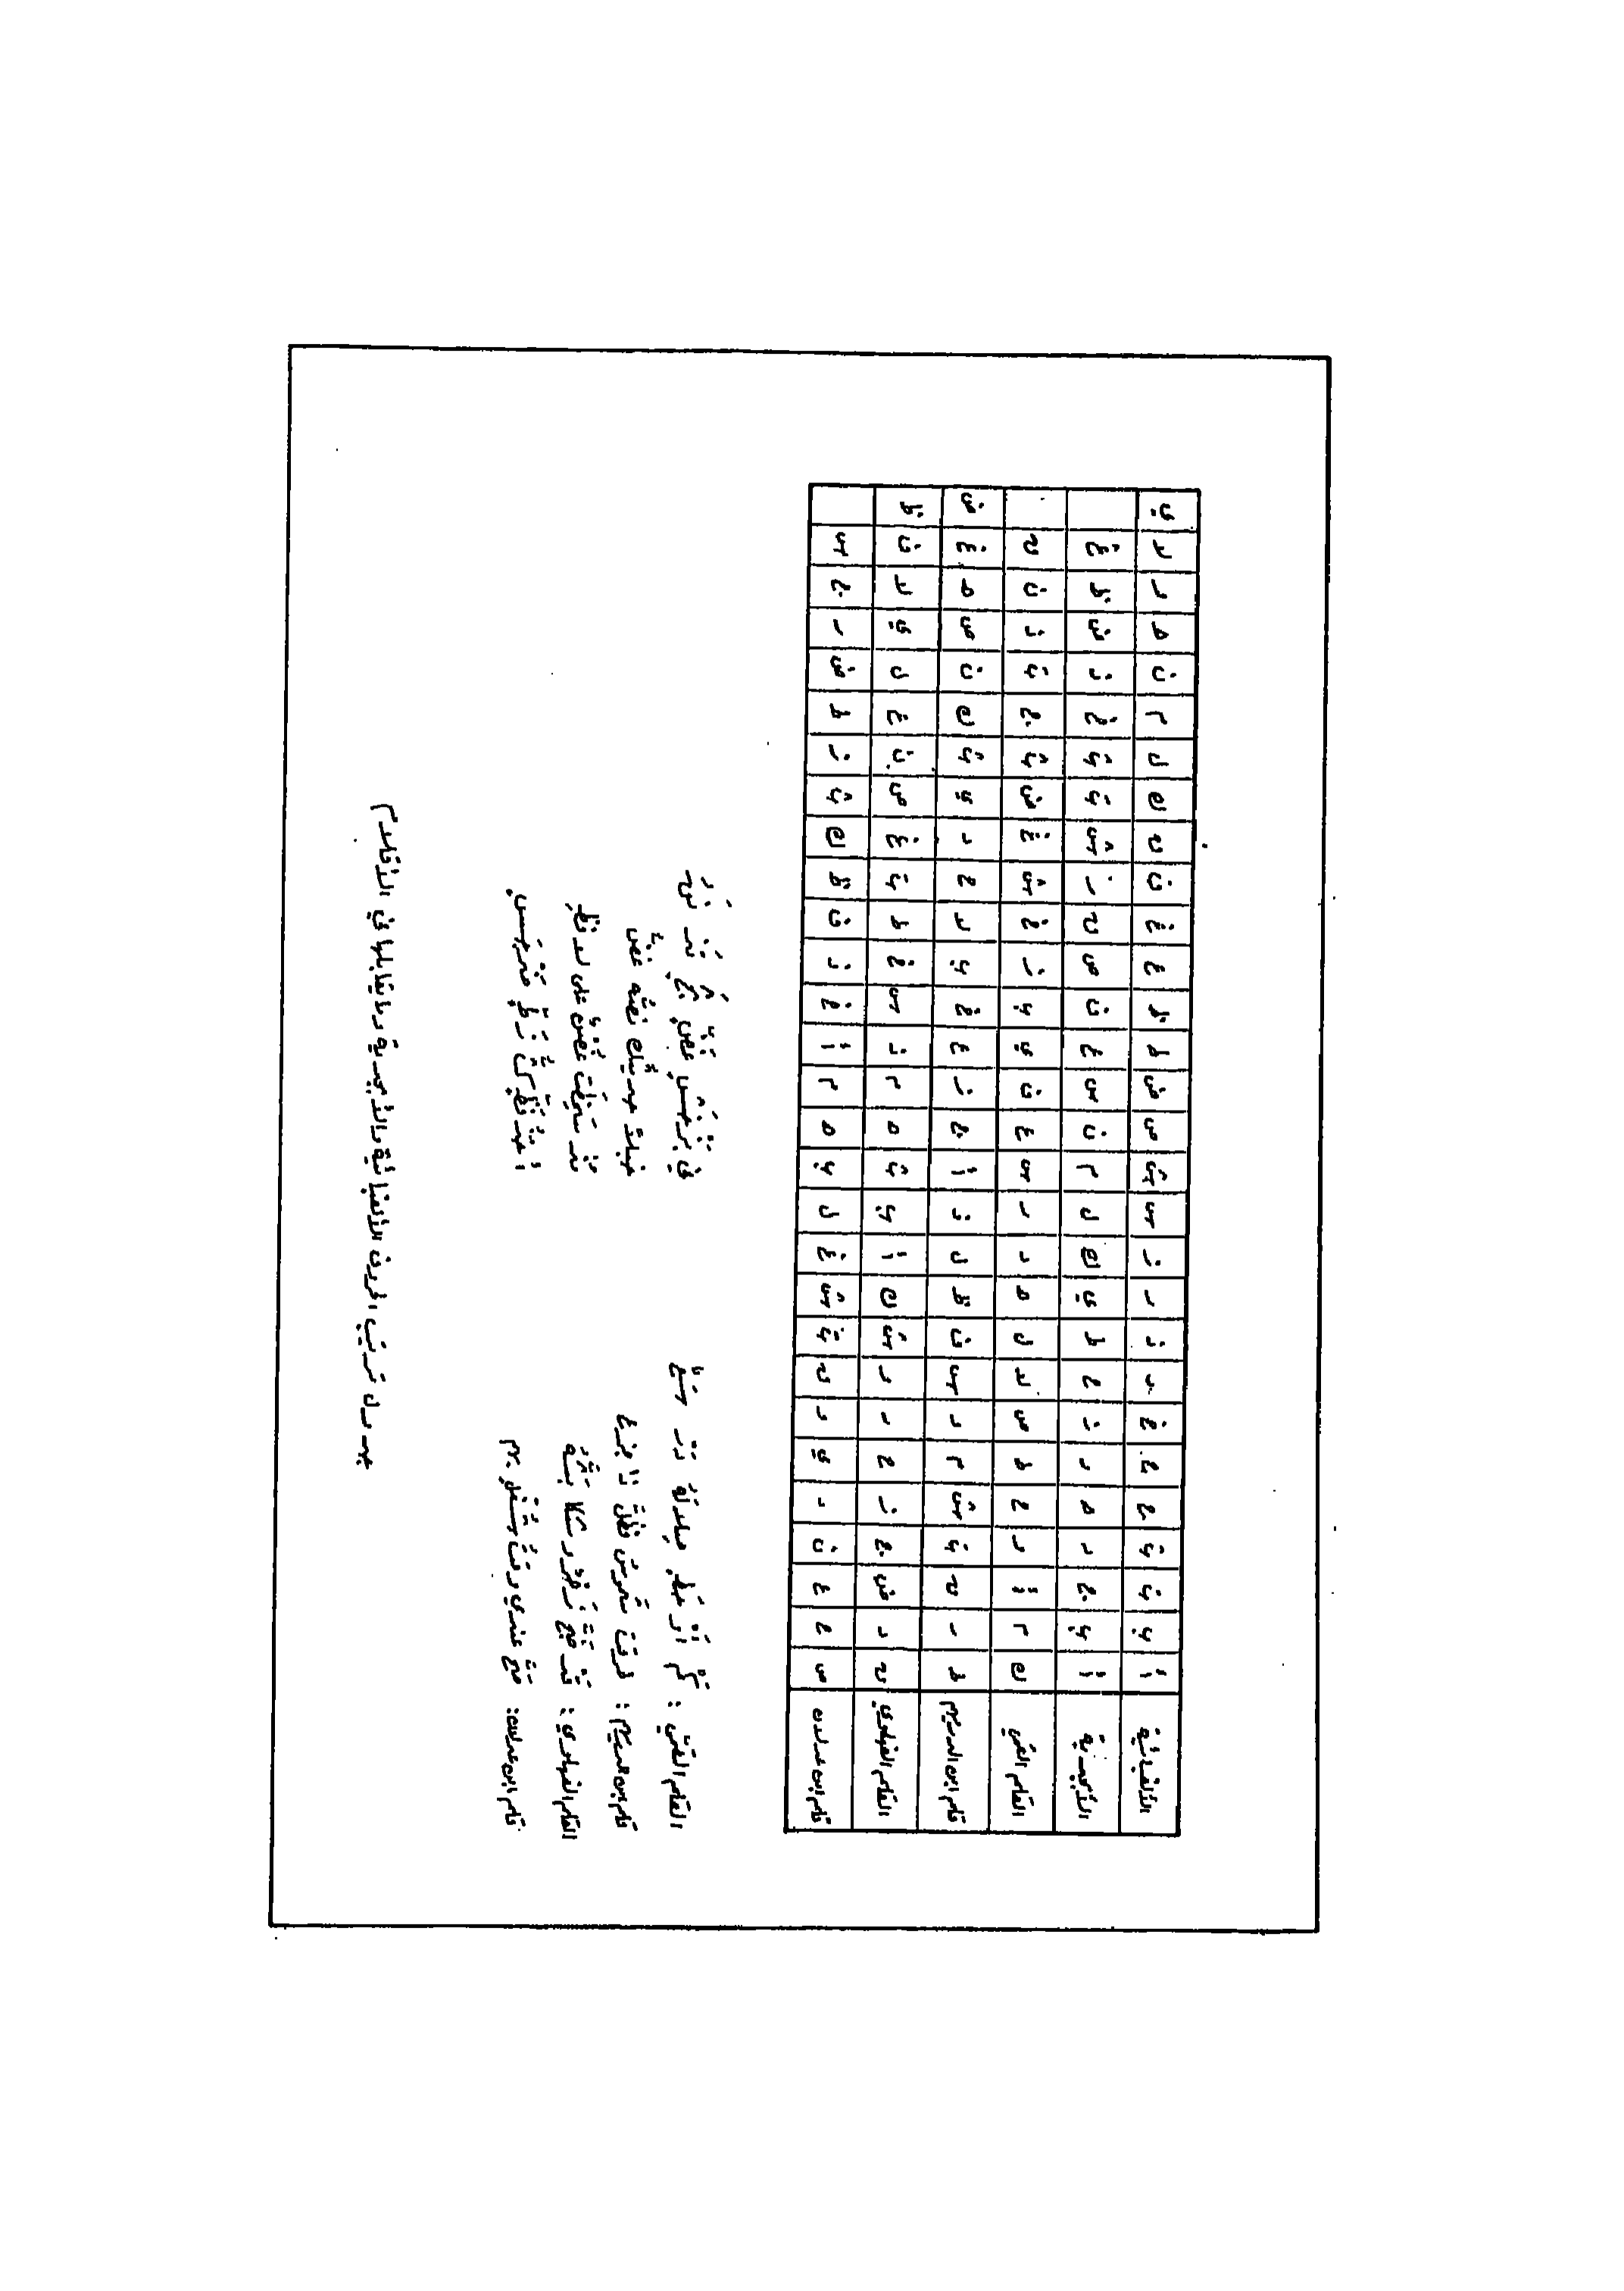 الألفبائية أ ب ت ث ج ح خ د ذ ر ز س ش ص ض ط ظ ع غ ف ق ك ل م ن ه و لا ي
الأبجدية أ ب ج د ه و ز ح ط ي ك ل م ن س ع ف ص ق ر ش ت ث خ ذ ض ظ غ
القلم القمي ك م أ و ح ط ص لا ل ه د ر س ع ف ي ب ز خ ش غ ض ث ج ت ذ ن ق
قلم ابن الدريهم ط ر ق ت ش م و س ف ظ ل ذ أ ج ز ع خ ب لا ح د ي ث ك ن ص ه غ ض
القلم الفهلوي ق د ض ج ز ح ر و ش ك أ ب ث ه م ذ س خ ط ت غ ص ن ع ل ي لا ف ظ
قلم ابن عدلان ص ح ع ن د ي و ق ت ش غ ل ب ه م أ خ ذ ف ظ ك ث ز ط ض ر ج س
القلم القمي : كم أو حط صلا له در سع في بز خش غض ثج تذ نق
قلم ابن دريهم : طرقت شموس فظل ذا جزع خبلا حديث كنصه غض
القلم الفهلوي : قد ضج زحر وشكا بثه مذ سخطت غصن على لافظ
قلم ابن عدلان : صح عندي وقت شغل بهم أخذ فظ كث زط ضر جس
جدول ترتيب الحروف الألفبائية والأبجدية وما يقابلها في الأقلام